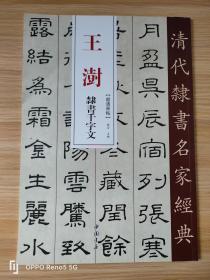 清代隸書名家經典
王澍
隸書千字文
中国书店
辰宿列張寒來暑往
藏閏餘成歲
雲騰致雨
露結為霜金生麗水
OPPO Reno5 5G